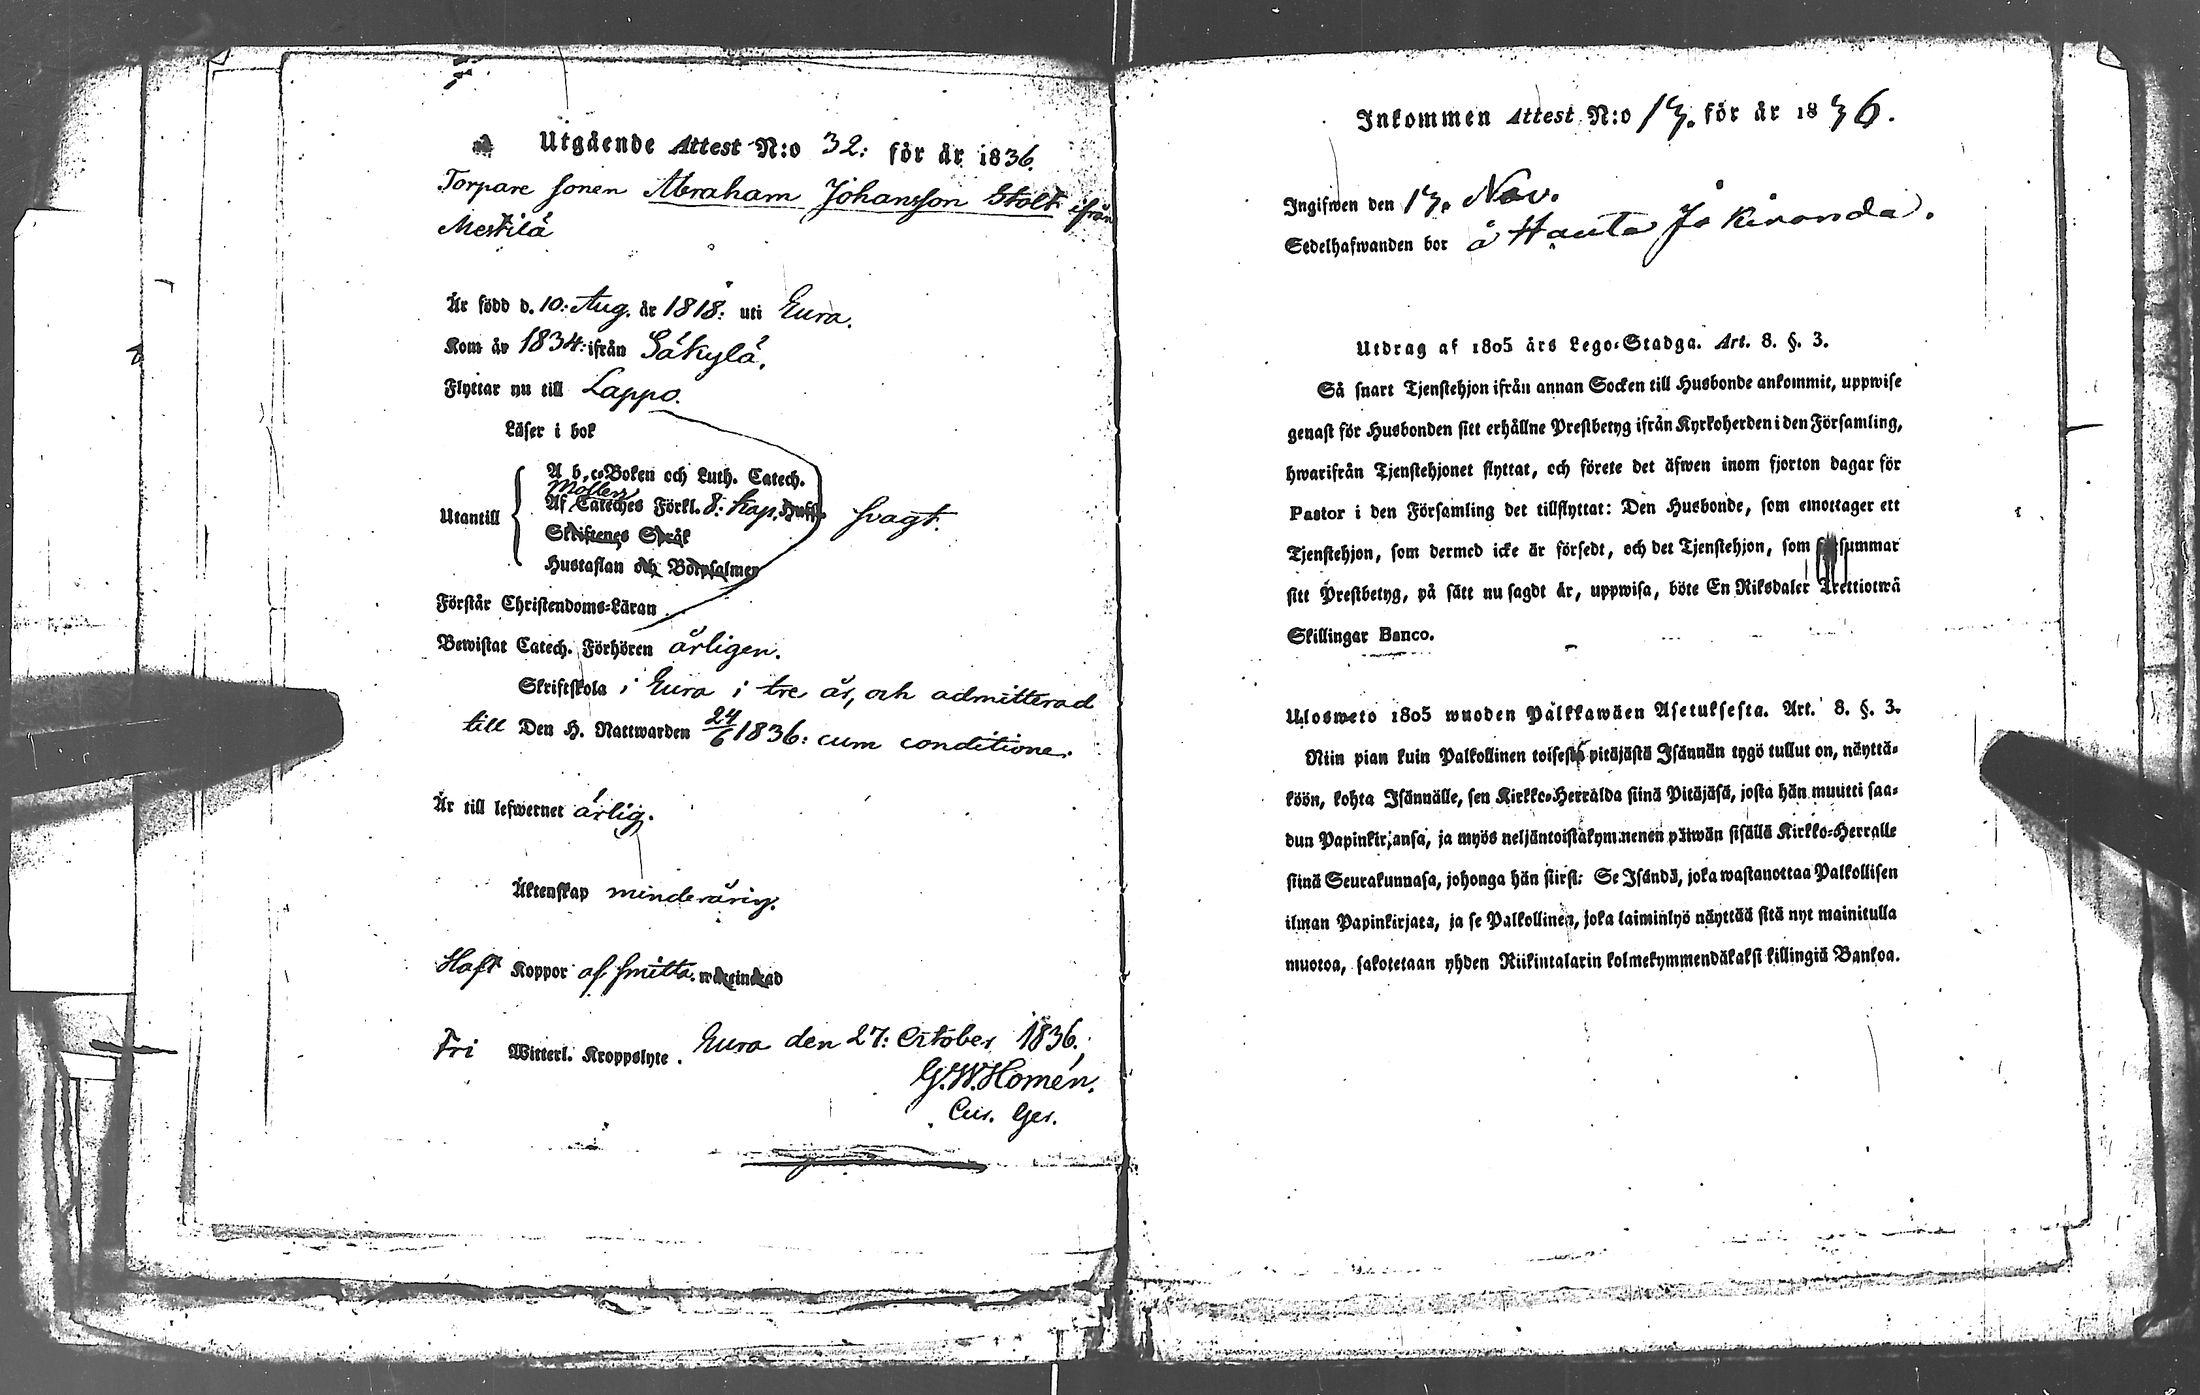 Utgående Attest N:o 32: för år 1836.
Torpare sonen Abraham Johansson Stolt ifrån
Mestilä
Är född d. 10: Aug. år 1818: uti Eura.
Kom år 1834: ifrån Säkylä.
Flyttar nu till Lappo.
Läser i bok
A b, c=Boken och Luth. Catech.
Möllers
Af Cateches Förkl. 8: Kap.
Utantill
svagt.
Skriftenes Språk
Hustaflan och Botpsalmer
Förstår Christendoms=Läran
Bewistat Catech. Förhören årligen.
Skriftskola i Eura i tre år, och admitterad
till Den H. Nattwarden 24/6 1836: cum conditione.
Är till lefwernet ärlig.
Äktenskap minderårig.
Haft Koppor af smitta.
Fri Witterl. Kroppslyte. Eura den 27: October 1836.
G.W. Homén.
Inkommen Attest N:o 17. för år 1836.
Ingifwen den 17. Nov.
Sedelhafwanden bor å Hauta
Utdrag af 1805 års Lego=Stadga. Art. 8. §. 3.
Så snart Tjenstehjon ifrån annan Socken till Husbonde ankommit, uppwise
genast för Husbonden sitt erhållne Prestbetyg ifrån Kyrkoherden i den Församling,
hwarifrån Tjenstehjonet flyttat, och förete det äfwen inom fjorton dagar för
Pastor i den Församling det tillflyttat: Den Husbonde, som emottager ett
Tjenstehjon, som dermed icke är försedt, och det Tjenstehjon, som försummar
sitt Prestbetyg, på sätt nu sagdt är, uppwisa, böte En Riksdaler Trettiotwå
Skillingar Banco.
Ulosweto 1805 wuoden Palkkawäen Asetuksesta. Art. 8. §. 3.
Niin pian kuin Palkollinen toisesta pitäjästä Isännän tygö tullut on, näyttä=
köön, kohta Isännälle, sen Kirkko=Herralda siinä Pitäjäsä, josta hän muutti saa=
dun Papinkirjansa, ja myös neljäntoistakymmenen päiwän sisällä Kirkko=Herralle
siinä Seurakunnasa, johonga hän siirsi: Se Isändä, joka wastanottaa Palkollisen
ilman Papinkirjata, ja se Palkollinen, joka laiminlyö näyttää sitä nyt mainitulla
muotoa, sakotetaan yhden Riikintalarin kolmekymmendäkaksi killingiä Bankoa.